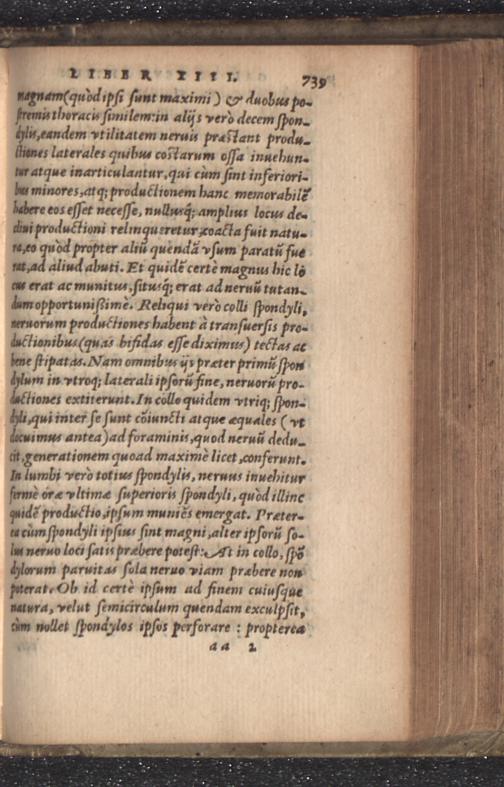 LIBER XIII. 739
magnam (quòd ipsi sunt maximi) & duobus po-
stremis thoracis similem: in alijs verò decem spon-
dylis, eandem vtilitatem neruis præstant produ-
ctiones laterales quibus costarum ossa inuehun-
tur atque inarticulantur, qui cùm sint inferiori-
bus minores, atq; productionem hanc memorabilẽ
habere eos esset necesse, nullusq; amplius locus de-
cliui productioni relinqueretur, coacta fuit natu-
ra, eo quòd propter aliũ quendã vsum paratũ fue
rat, ad aliud abuti. Et quidẽ certè magnus hic lo
cus erat ac munitus, situsq; erat ad neruũ tutan-
dum opportunissimè. Reliqui verò colli spondyli,
neruorum productiones habent à transuersis pro-
ductionibus (quas bifidas esse diximus) tectas ac
bene stipatas. Nam omnibus ijs præter primũ spon
dylum in vtroq; laterali ipsorũ fine, neruorũ pro-
ductiones extiterunt. In collo quidem vtriq; spon-
dyli, qui inter se sunt cõiuncti atque æquales (vt
docuimus antea) ad foraminis, quod neruũ dedu-
cit, generationem quoad maximè licet, conferunt.
In lumbi verò totius spondylis, neruus inuehitur
fermè oræ vltimæ superioris spondyli, quòd illinc
quidẽ productio, ipsum muniẽs emergat. Præter-
ea cùm spondyli ipsius sint magni, alter ipsorũ so-
lus neruo loci satis præbere potest: At in collo, spõ
dylorum paruitas sola neruo viam præbere non
poterat. Ob id certè ipsum ad finem cuiusque
natura, velut semicirculum quendam exculpsit,
cùm nollet spondylos ipsos perforare : propterea
aa 2